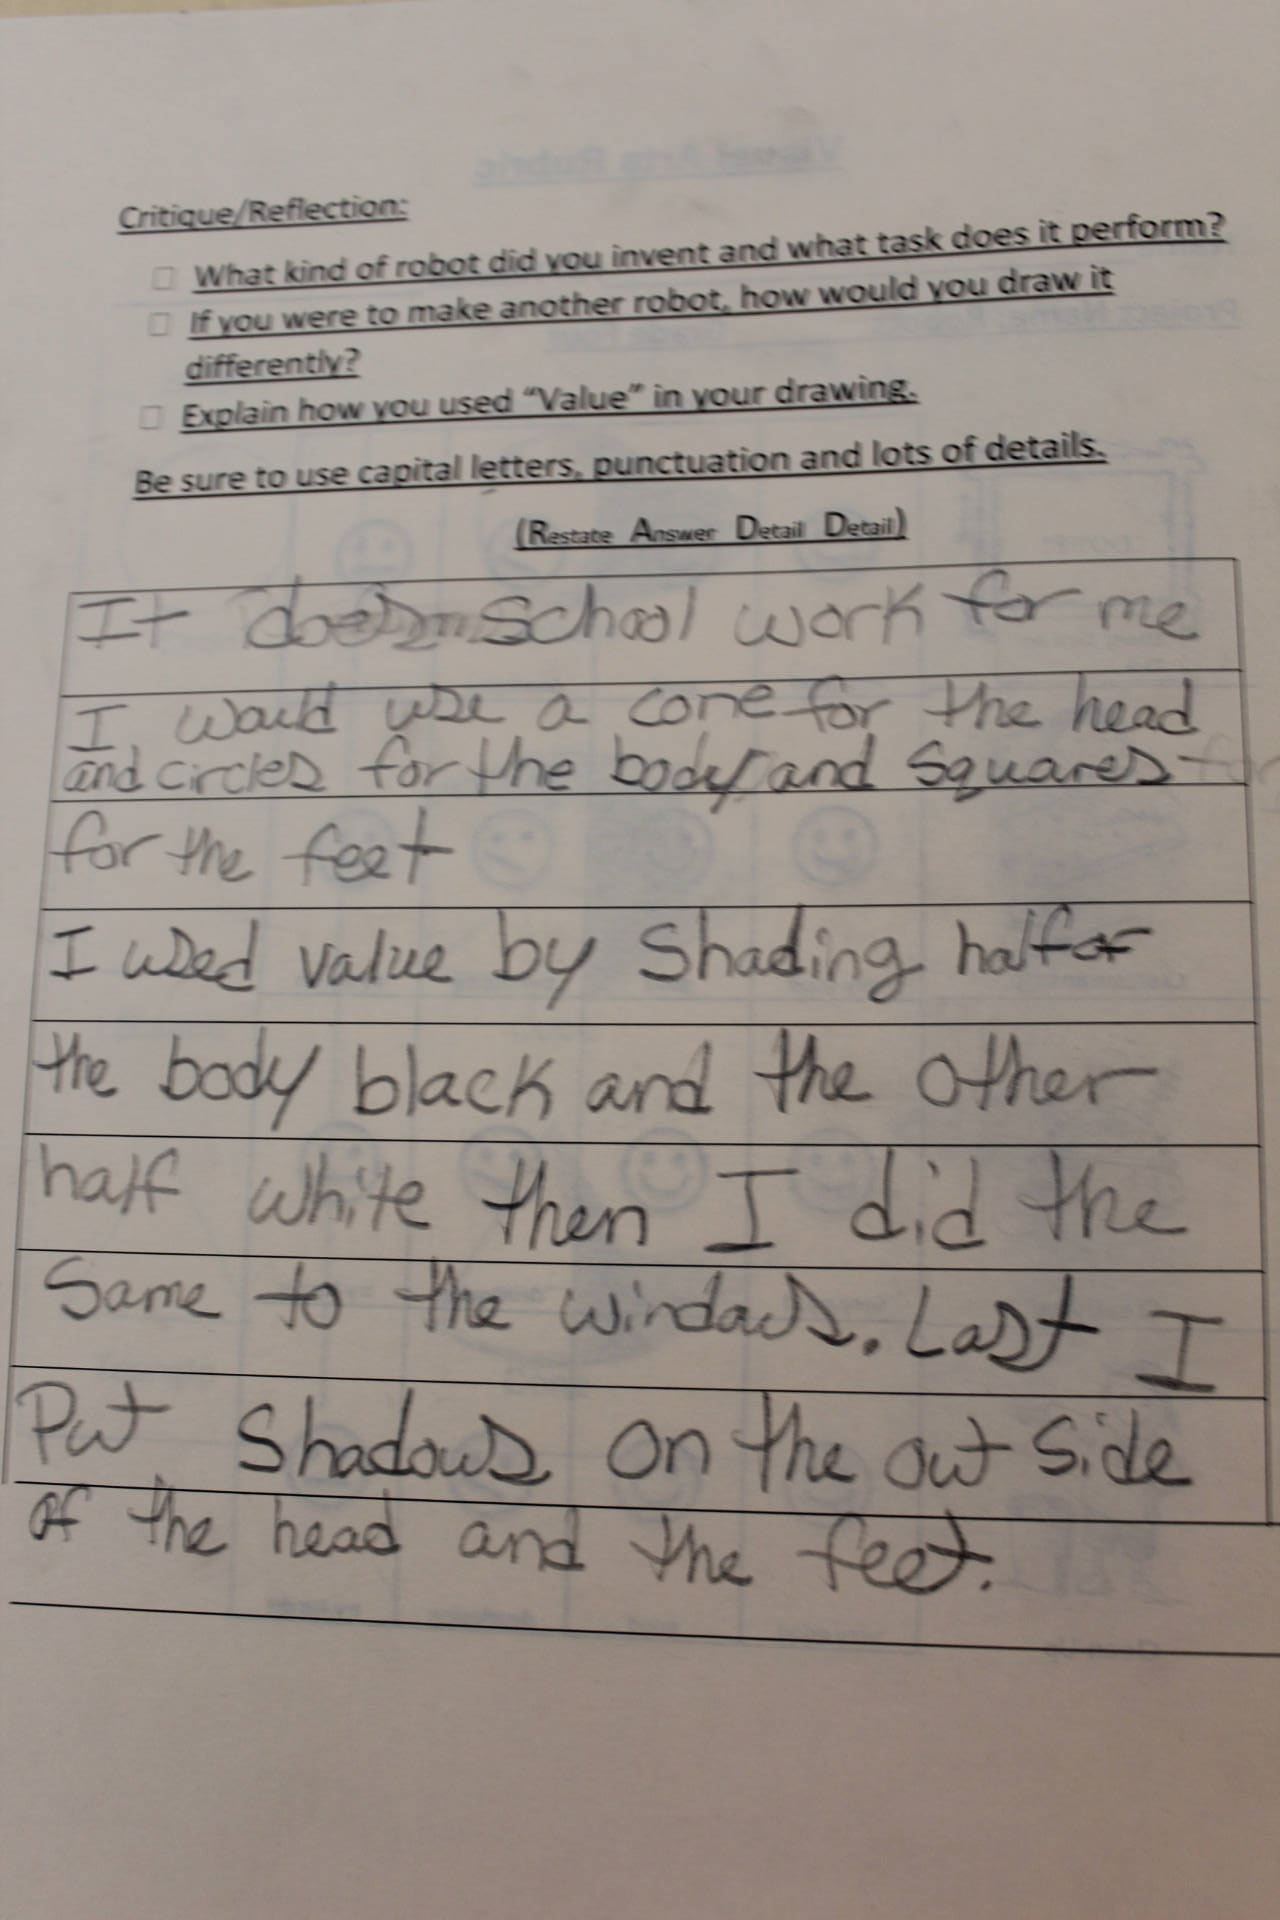 Critique/Reflection:
What kind of robot did you invent and what task does it perform?
If you were to make another robot, how would you draw it
differently?
Explain how you used “Value” in your drawing.
Be sure to use capital letters, punctuation and lots of details.
(Restate Answer Detail Detail)
It does School work for me
I would use a cone for the head
and circles for the body and squares for
for the feet
I used value by Shading half of
the body black and the other
half white then I did the
Same to the windows. Last I
Put Shadows on the out side
of the head and the feet.